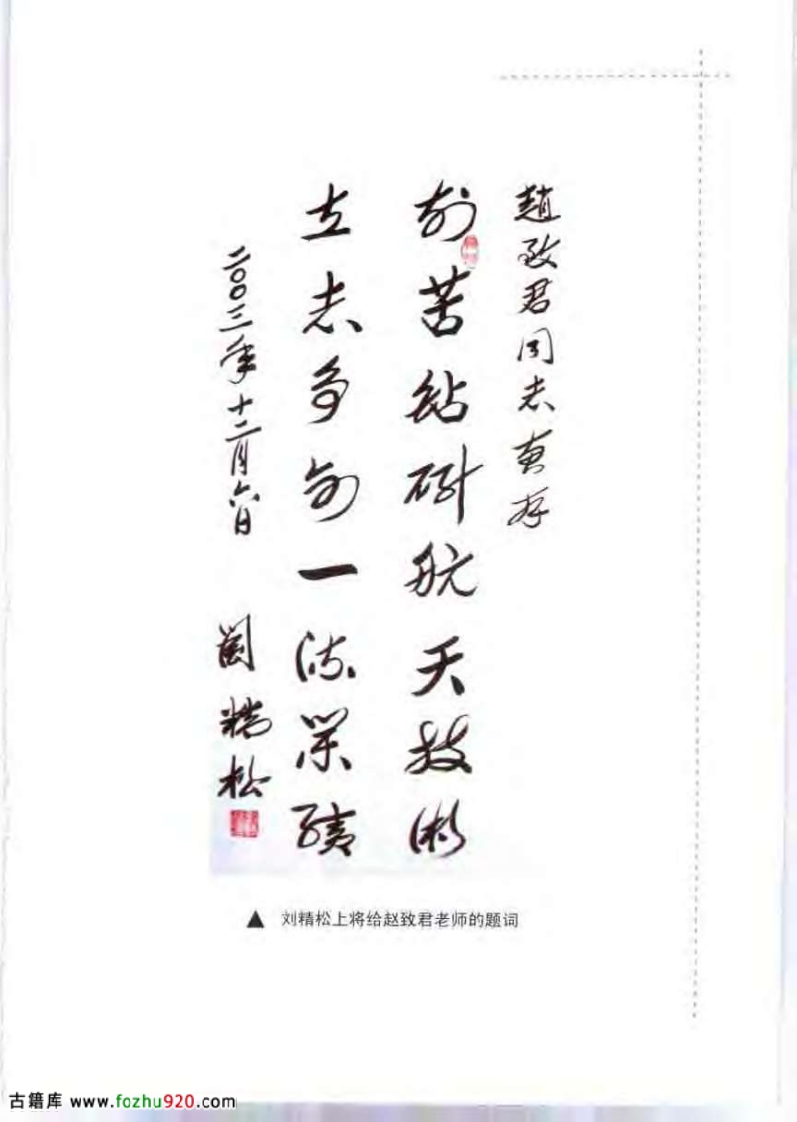 趙致君同志惠存
刻苦钻研航天技術
立志多創一流業績
二〇〇三年十二月六日 劉精松
▲ 刘精松上将给赵致君老师的题词
古籍库 www.fozhu920.com